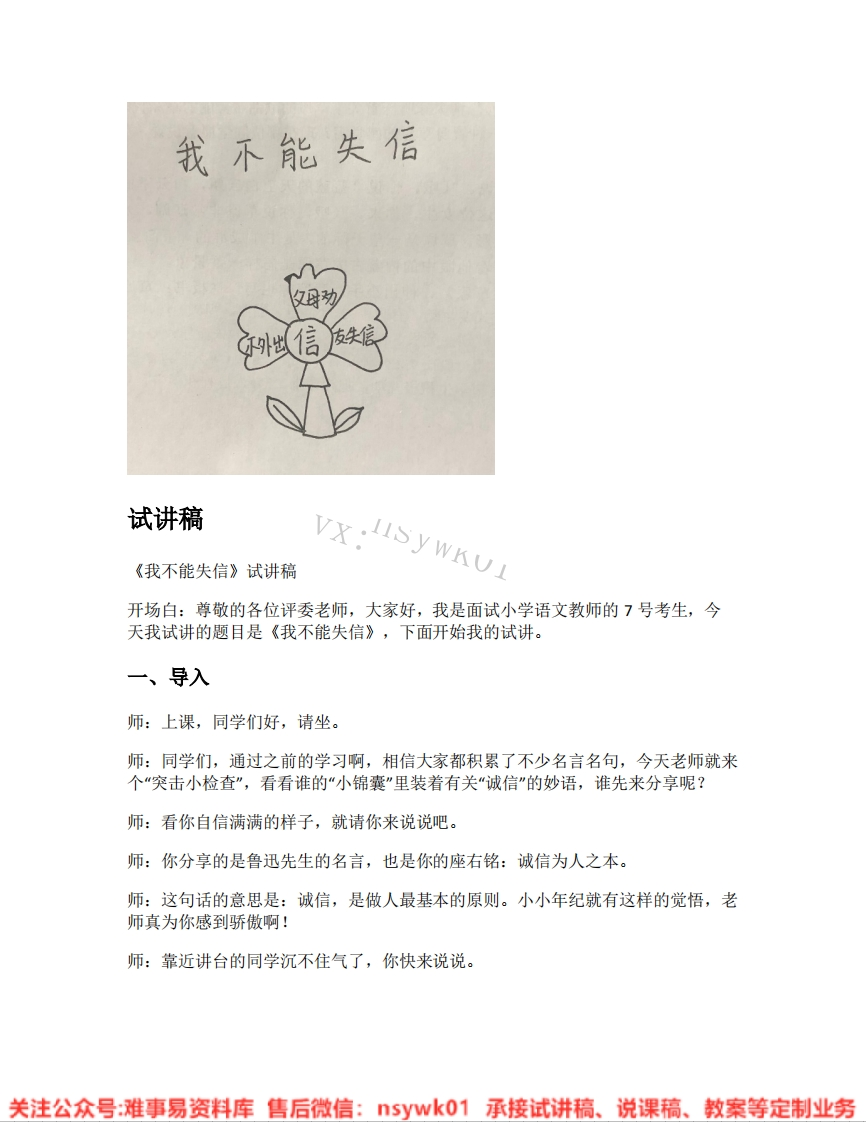 我不能失信
父母劝
不外出
信
友失信
试讲稿
VX:nsywk01
《我不能失信》试讲稿
开场白：尊敬的各位评委老师，大家好，我是面试小学语文教师的 7 号考生，今
天我试讲的题目是《我不能失信》，下面开始我的试讲。
一、导入
师：上课，同学们好，请坐。
师：同学们，通过之前的学习啊，相信大家都积累了不少名言名句，今天老师就来
个“突击小检查”，看看谁的“小锦囊”里装着有关“诚信”的妙语，谁先来分享呢？
师：看你自信满满的样子，就请你来说说吧。
师：你分享的是鲁迅先生的名言，也是你的座右铭：诚信为人之本。
师：这句话的意思是：诚信，是做人最基本的原则。小小年纪就有这样的觉悟，老
师真为你感到骄傲啊！
师：靠近讲台的同学沉不住气了，你快来说说。
关注公众号:难事易资料库 售后微信：nsywk01 承接试讲稿、说课稿、教案等定制业务